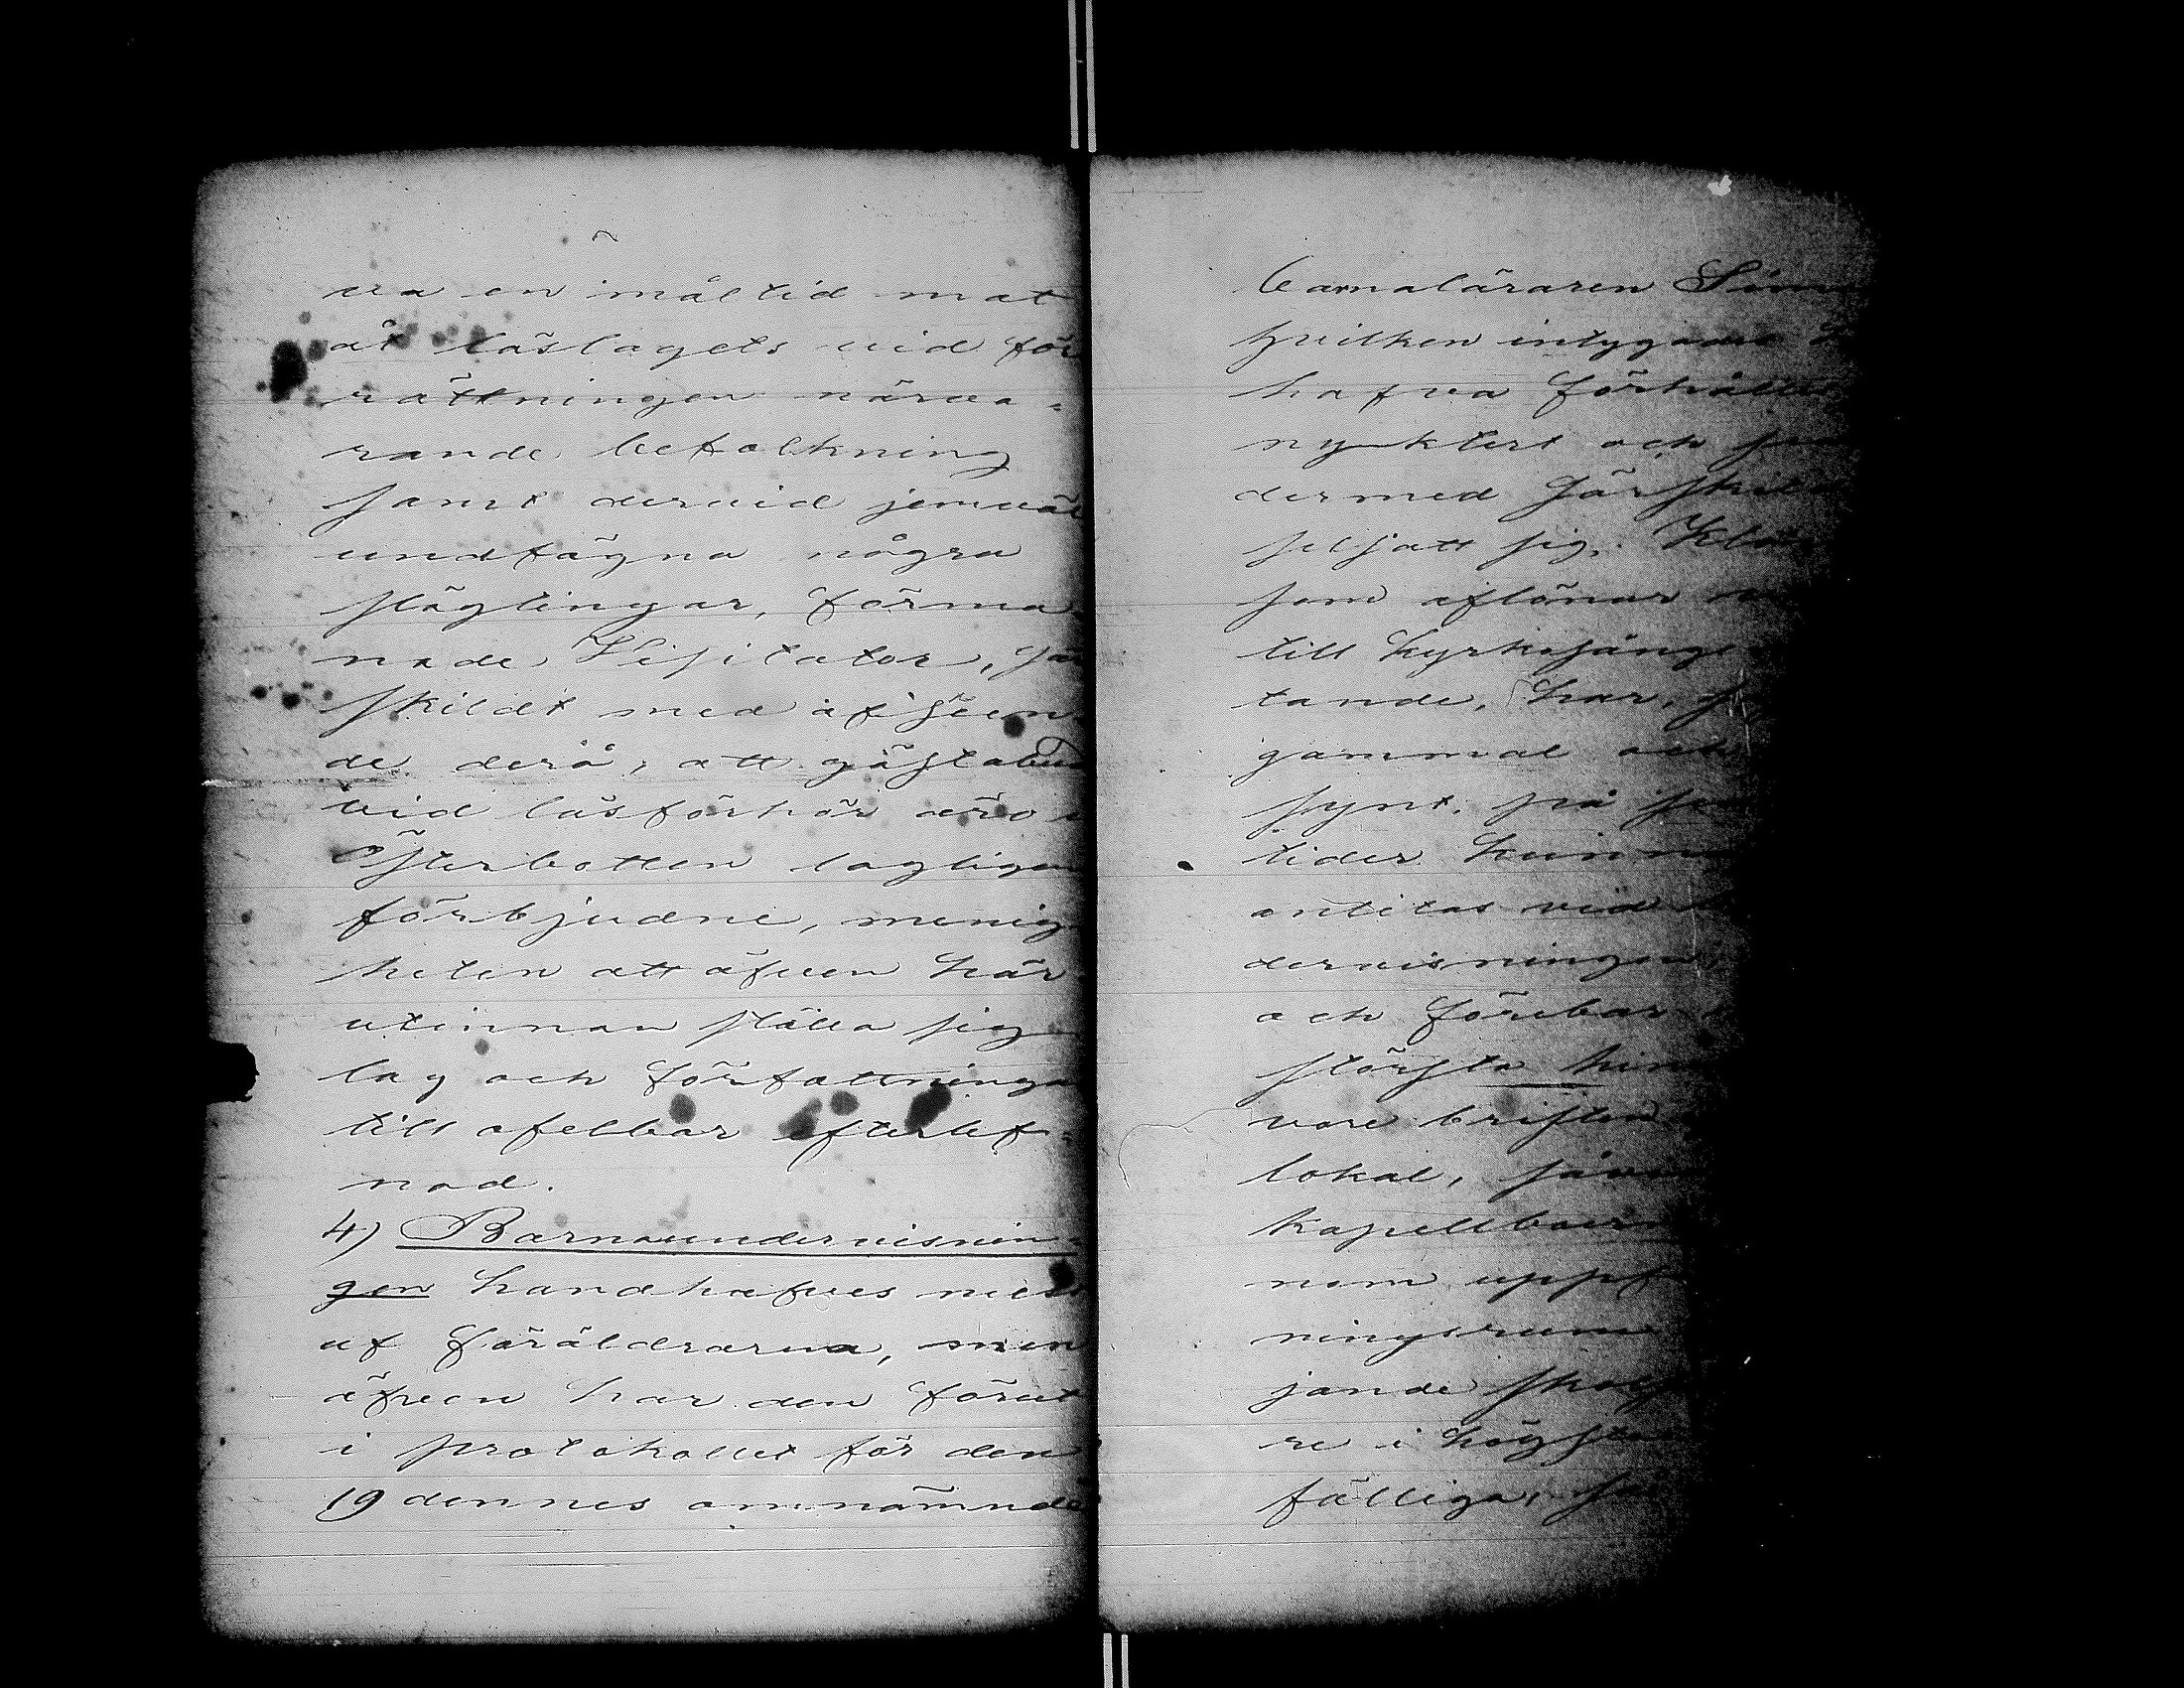 ra en måltid mat
åt läslagets vid för
rättningen närva=
rande befolkning
samt dervid jemväl
undfägna några
släglingar, förma
nade Visitator, sär
skildt med afseen
de derå, att gästabud
vid läsförhör äro i
Österbotten lagligen
förbjudne, menig
heten att äfven här
utinnan ställa sig
lag och författninga
till ofelbar efterlef=
nad.
4) Barnaundervisnin=
gen handhafves mest
af föräldrarna, men
äfven har den förut
i protokollet för den
19 dennes omnämnde
barnaläraren
hvilken intygades
hafva förhålla
nyktert och
dermed
siljatt sig.
som aflönar
till kyrkosånge
tande, har,
gammal och
synt, på
tider kunn
anlitas vid
dervisningen,
och förebar
största hin
vore bristen
lokal, såv
kapellboern
nom uppf
ningsrum
jande skol
re i högsta
fälliga,